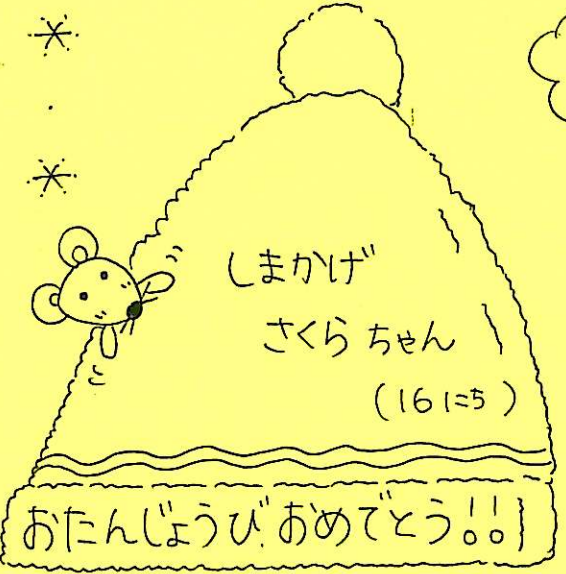 しまかげ
さくらちゃん
(16にち)
おたんじょうび.おめでとう!!